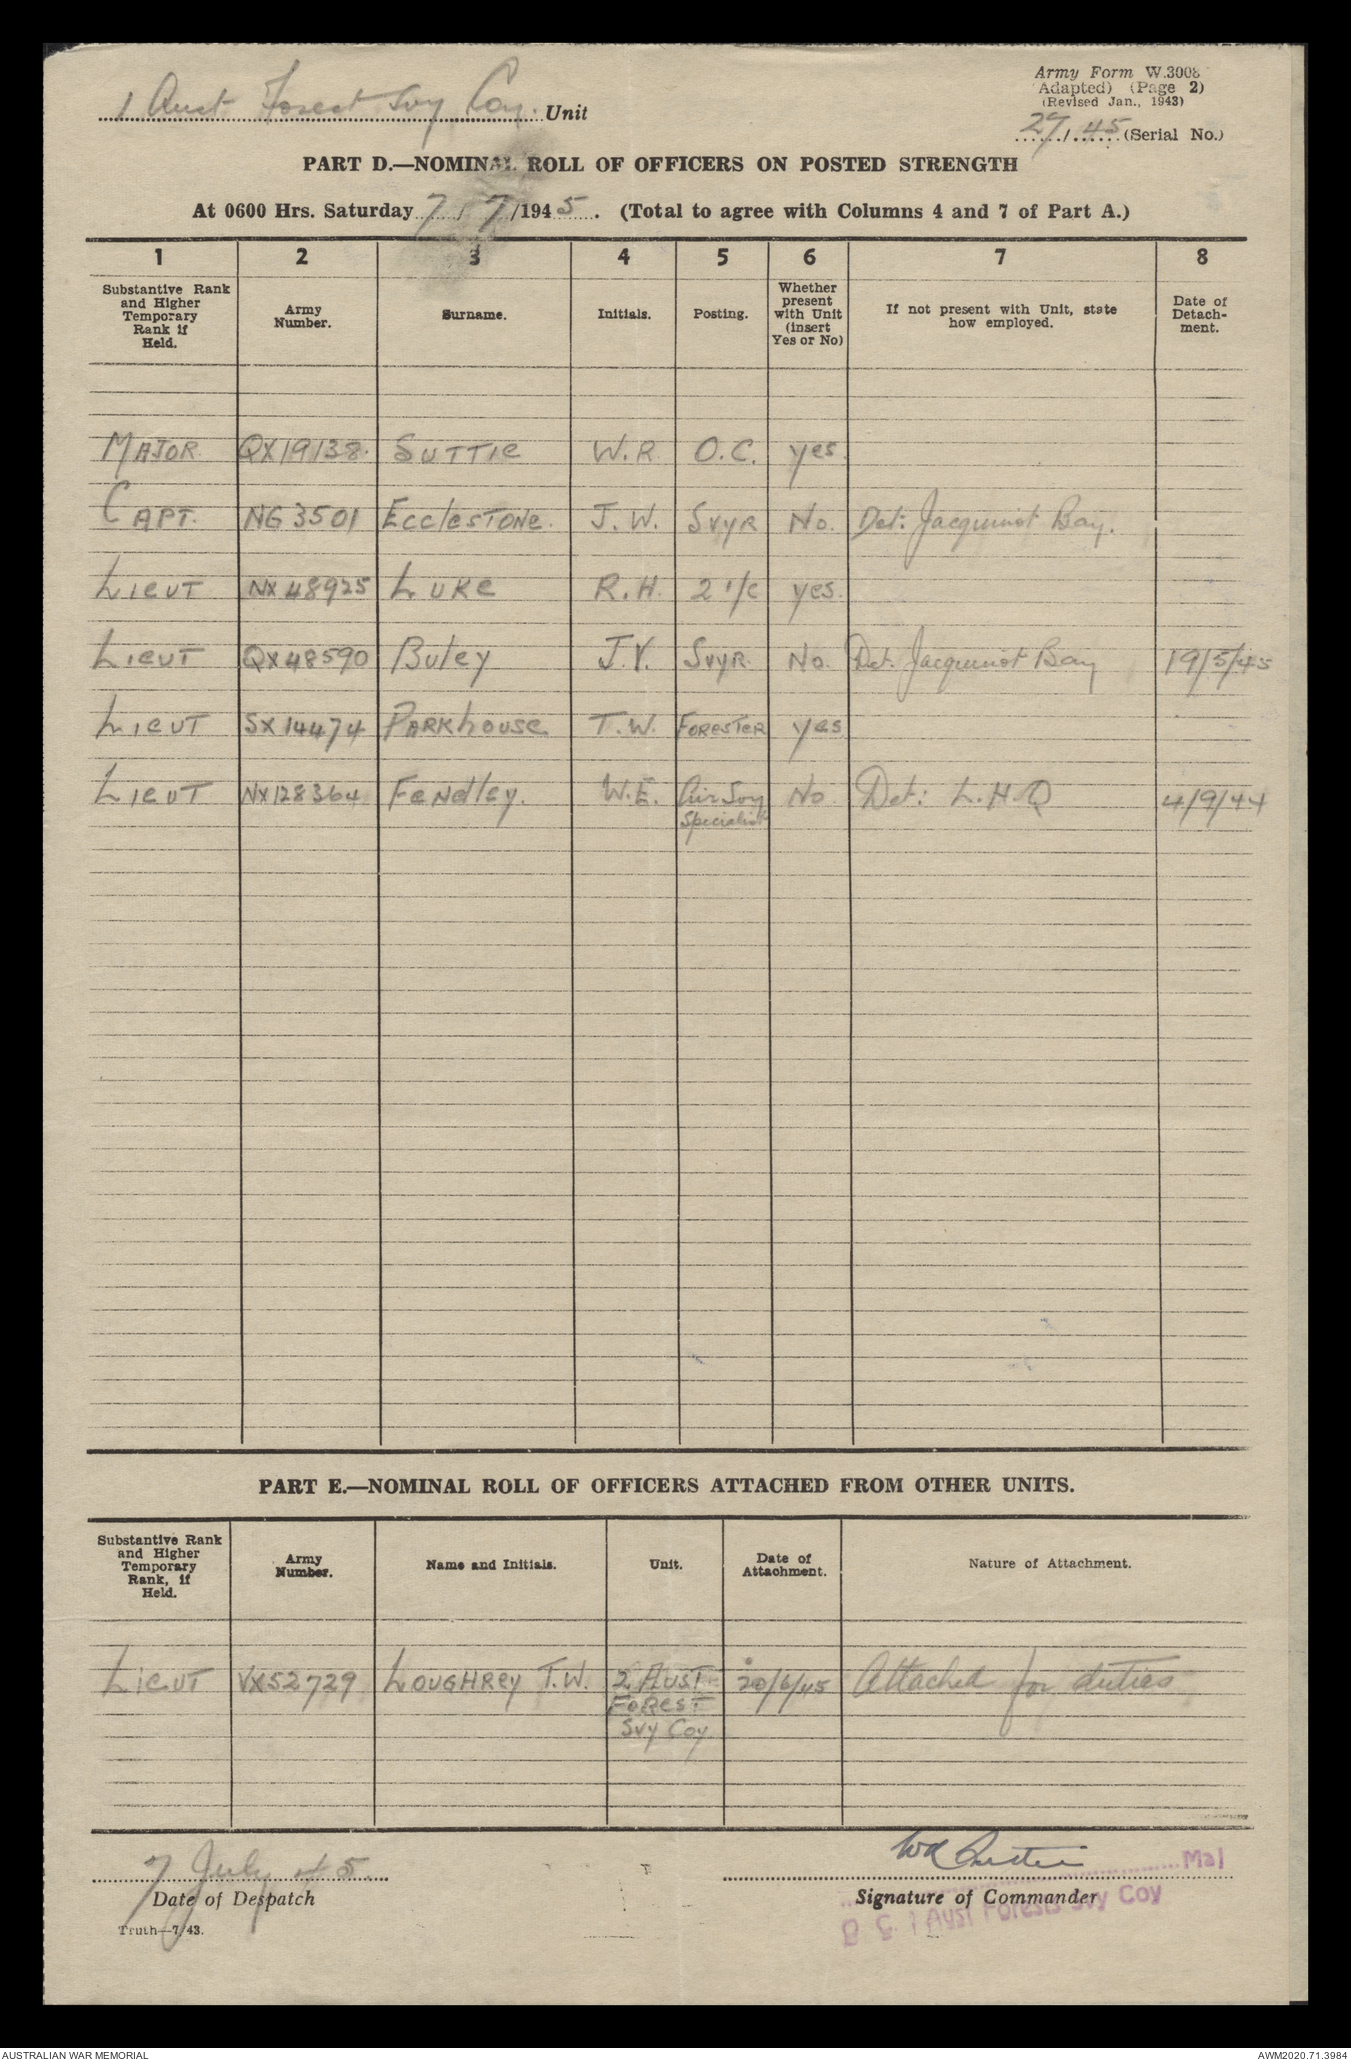 1 Aust Forest Svy Coy. Unit
Army Form W.3008
(Adapted) (Page 2)
(Revised Jan., 1943)
27/45 (Serial No.)
PART D.—NOMINAL ROLL OF OFFICERS ON POSTED STRENGTH
At 0600 Hrs. Saturday 7/7/1945. (Total to agree with Columns 4 and 7 of Part A.)
1 2 3 4 5 6 7 8
Substantive Rank and Higher Temporary Rank if Held. Army Number. Surname. Initials. Posting. Whether present with Unit (insert Yes or No) If not present with Unit, state how employed. Date of Detach-ment.
MAJOR QX19138. SUTTIE W.R. O.C. yes.
CAPT. NG3501 EccleSTONe. J.W. SVYR No. Det: Jacquinot Bay.
LIEUT NX48925 LUKe R.H. 2 i/c yes.
LIEUT QX48590 Buley J.V. SVYR. No. Det. Jacquinot Bay 19/5/45
LIEUT SX14474 PARKhouse T.W. FORESTER yes
LIEUT NX128364 FeNdley. W.E. Air Svy Specialist No Det: L.H.Q 4/9/44
PART E.—NOMINAL ROLL OF OFFICERS ATTACHED FROM OTHER UNITS.
Substantive Rank and Higher Temporary Rank, if Held. Army Number. Name and Initials. Unit. Date of Attachment. Nature of Attachment.
LIEUT VX52729 LOUGHRey T.W. 2 AUST FOREST Svy Coy 20/6/45 Attached for duties
7 July 45.
Date of Despatch
Truth—7/43.
WR Suttie Maj
Signature of Commander
O.C. 1 Aust Forests Svy Coy
AUSTRALIAN WAR MEMORIAL
AWM2020.71.3984